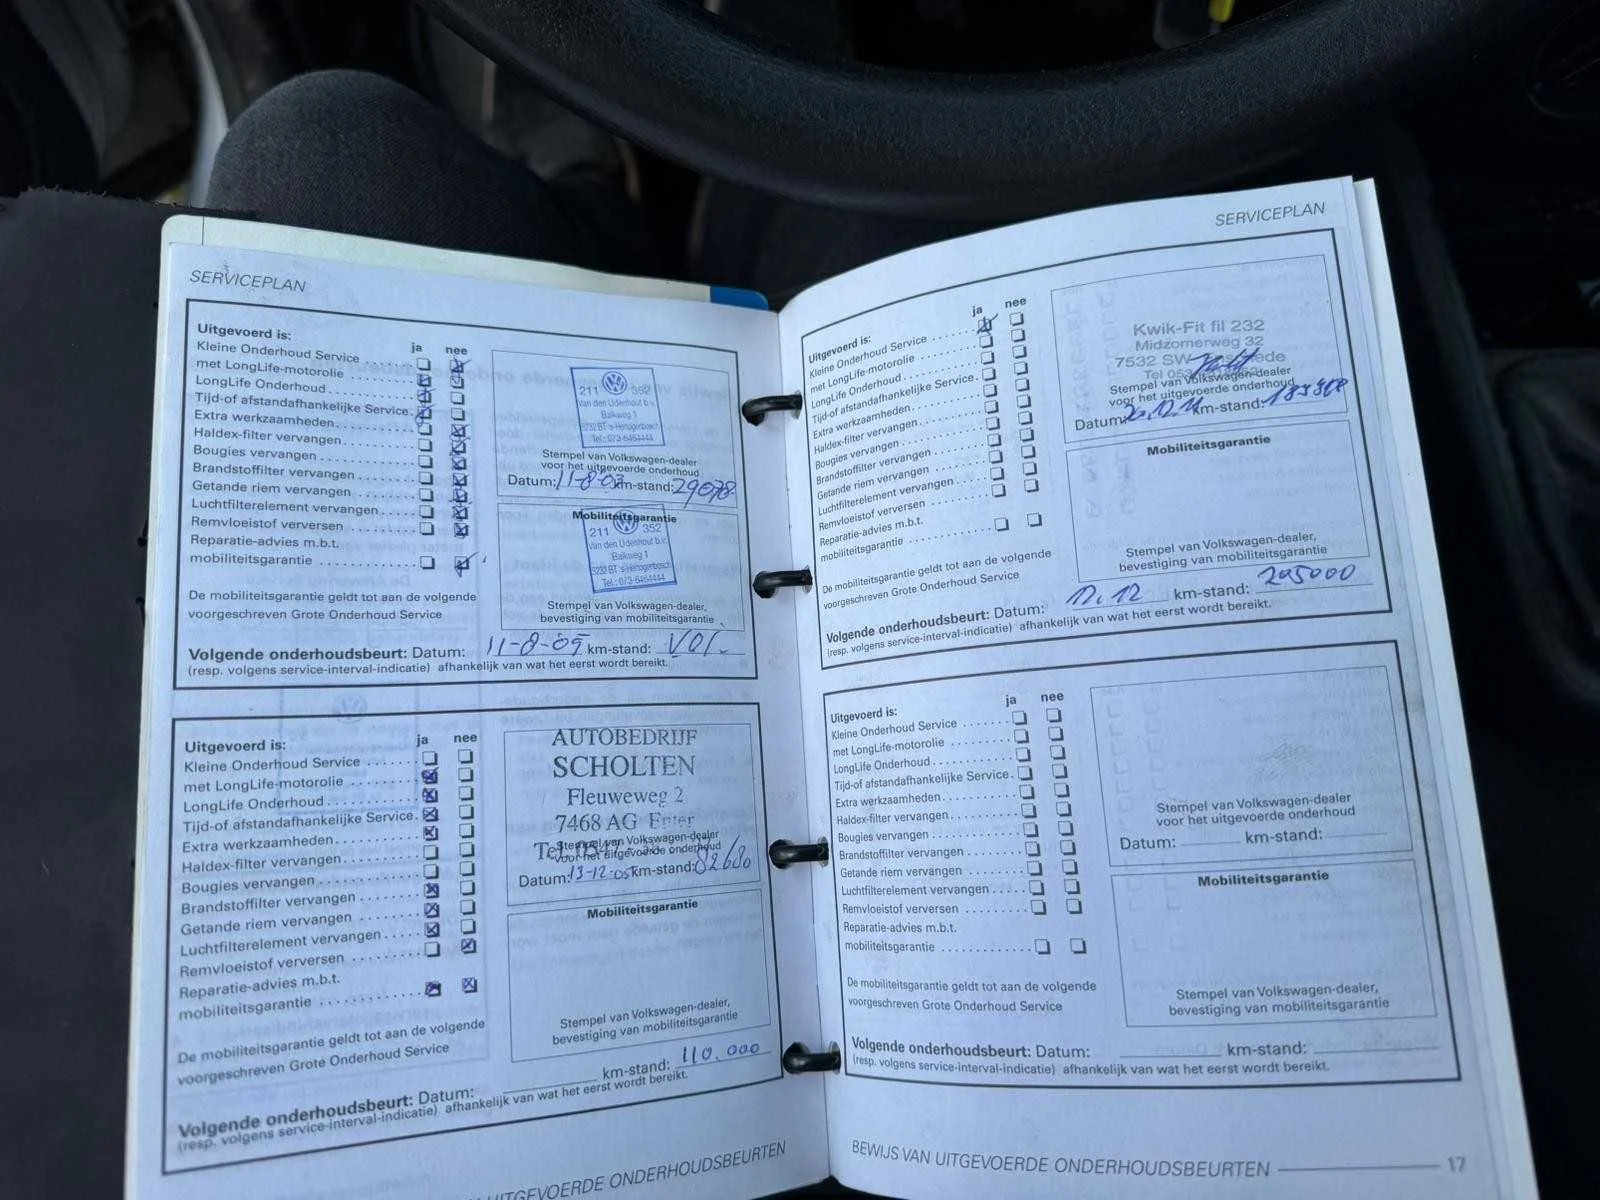 SERVICEPLAN
Uitgevoerd is: ja nee
Kleine Onderhoud Service
met LongLife-motorolie
LongLife Onderhoud
Tijd-of afstandafhankelijke Service
Extra werkzaamheden
Haldex-filter vervangen
Bougies vervangen
Brandstoffilter vervangen
Getande riem vervangen
Luchtfilterelement vervangen
Remvloeistof verversen
Reparatie-advies m.b.t.
mobiliteitsgarantie
De mobiliteitsgarantie geldt tot aan de volgende
voorgeschreven Grote Onderhoud Service
211 352
Van den Udenhout b.v.
Balkweg 1
5232 BT 's-Hertogenbosch
Tel.: 073-6464444
Stempel van Volkswagen-dealer
voor het uitgevoerde onderhoud
Datum: 11-8-03 km-stand: 29078
Mobiliteitsgarantie
211 352
Van den Udenhout b.v.
Balkweg 1
5232 BT 's-Hertogenbosch
Tel.: 073-6464444
Stempel van Volkswagen-dealer,
bevestiging van mobiliteitsgarantie
Volgende onderhoudsbeurt: Datum: 11-8-05 km-stand: VOL.
(resp. volgens service-interval-indicatie) afhankelijk van wat het eerst wordt bereikt.
Uitgevoerd is: ja nee
Kleine Onderhoud Service
met LongLife-motorolie
LongLife Onderhoud
Tijd-of afstandafhankelijke Service
Extra werkzaamheden
Haldex-filter vervangen
Bougies vervangen
Brandstoffilter vervangen
Getande riem vervangen
Luchtfilterelement vervangen
Remvloeistof verversen
Reparatie-advies m.b.t.
mobiliteitsgarantie
De mobiliteitsgarantie geldt tot aan de volgende
voorgeschreven Grote Onderhoud Service
AUTOBEDRIJF
SCHOLTEN
Fleuweweg 2
7468 AG Enter
Tel. 0547
Stempel van Volkswagen-dealer
voor het uitgevoerde onderhoud
Datum: 13-12-05 km-stand: 82680
Mobiliteitsgarantie
Stempel van Volkswagen-dealer,
bevestiging van mobiliteitsgarantie
Volgende onderhoudsbeurt: Datum: km-stand: 110.000
(resp. volgens service-interval-indicatie) afhankelijk van wat het eerst wordt bereikt.
UITGEVOERDE ONDERHOUDSBEURTEN
SERVICEPLAN
Uitgevoerd is: ja nee
Kleine Onderhoud Service
met LongLife-motorolie
LongLife Onderhoud
Tijd-of afstandafhankelijke Service
Extra werkzaamheden
Haldex-filter vervangen
Bougies vervangen
Brandstoffilter vervangen
Getande riem vervangen
Luchtfilterelement vervangen
Remvloeistof verversen
Reparatie-advies m.b.t.
mobiliteitsgarantie
De mobiliteitsgarantie geldt tot aan de volgende
voorgeschreven Grote Onderhoud Service
Kwik-Fit fil 232
Midzomerweg 32
7532 SW
Tel
Stempel van Volkswagen-dealer
voor het uitgevoerde onderhoud
Datum: 20.12.11 km-stand:
Mobiliteitsgarantie
Stempel van Volkswagen-dealer,
bevestiging van mobiliteitsgarantie
Volgende onderhoudsbeurt: Datum: 12.12 km-stand: 205000
(resp. volgens service-interval-indicatie) afhankelijk van wat het eerst wordt bereikt.
Uitgevoerd is: ja nee
Kleine Onderhoud Service
met LongLife-motorolie
LongLife Onderhoud
Tijd-of afstandafhankelijke Service
Extra werkzaamheden
Haldex-filter vervangen
Bougies vervangen
Brandstoffilter vervangen
Getande riem vervangen
Luchtfilterelement vervangen
Remvloeistof verversen
Reparatie-advies m.b.t.
mobiliteitsgarantie
De mobiliteitsgarantie geldt tot aan de volgende
voorgeschreven Grote Onderhoud Service
Stempel van Volkswagen-dealer
voor het uitgevoerde onderhoud
Datum: km-stand:
Mobiliteitsgarantie
Stempel van Volkswagen-dealer,
bevestiging van mobiliteitsgarantie
Volgende onderhoudsbeurt: Datum: km-stand:
(resp. volgens service-interval-indicatie) afhankelijk van wat het eerst wordt bereikt.
BEWIJS VAN UITGEVOERDE ONDERHOUDSBEURTEN 17